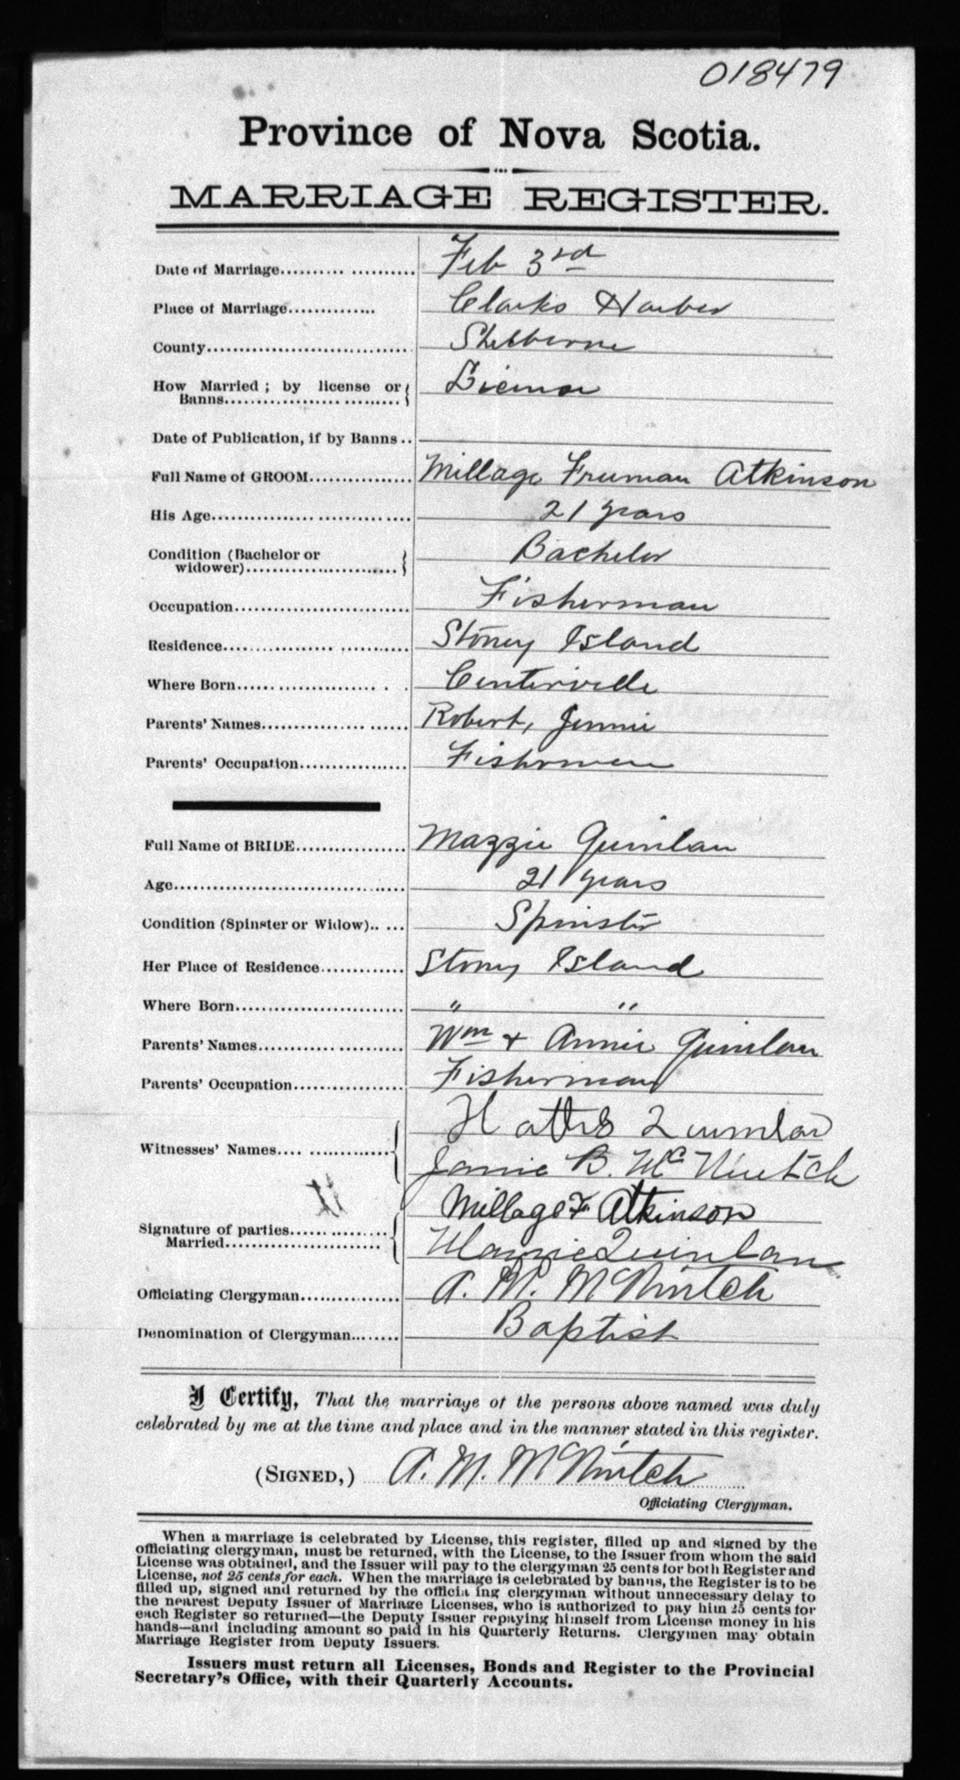 018479
Province of Nova Scotia.
MARRIAGE REGISTER.
Date of Marriage.......... .......... Feb 3rd
Place of Marriage............. Clarks Harbor
County............................... Shelburne
How Married ; by license or Banns.................. ......... License
Date of Publication, if by Banns ..
Full Name of GROOM................ Millage Freeman Atkinson
His Age.............................. 21 years
Condition (Bachelor or widower)....................... Bachelor
Occupation.......................... Fisherman
Residence................. ........... Stoney Island
Where Born...... ............... . . Centerville
Parents' Names............... ...... Robert, Jennie
Parents' Occupation................. Fishermen
Full Name of BRIDE................ Mazzie Quinlan
Age.................................... 21 years
Condition (Spinster or Widow).. ... Spinster
Her Place of Residence............. Stoney Island
Where Born......................... " "
Parents' Names............ .......... Wm & Annie Quinlan
Parents' Occupation................. Fisherman
Witnesses' Names.... ............. Quinlan
B. McNintch
Signature of parties............... Millage F Atkinson
Married......................... Mazzie Quinlan
Officiating Clergyman............... A. M. McNintch
Denomination of Clergyman........ Baptist
I Certify, That the marriage of the persons above named was duly
celebrated by me at the time and place and in the manner stated in this register.
(SIGNED,) A. M. McNintch
Officiating Clergyman.
When a marriage is celebrated by License, this register, filled up and signed by the
officiating clergyman, must be returned, with the License, to the Issuer from whom the said
License was obtained, and the Issuer will pay to the clergyman 25 cents for both Register and
License, not 25 cents for each. When the marriage is celebrated by banns, the Register is to be
filled up, signed and returned by the officia ing clergyman without unnecessary delay to
the nearest Deputy Issuer of Marriage Licenses, who is authorized to pay him 25 cents for
each Register so returned—the Deputy Issuer repaying himself from License money in his
hands—and including amount so paid in his Quarterly Returns. Clergymen may obtain
Marriage Register from Deputy Issuers.
Issuers must return all Licenses, Bonds and Register to the Provincial
Secretary's Office, with their Quarterly Accounts.